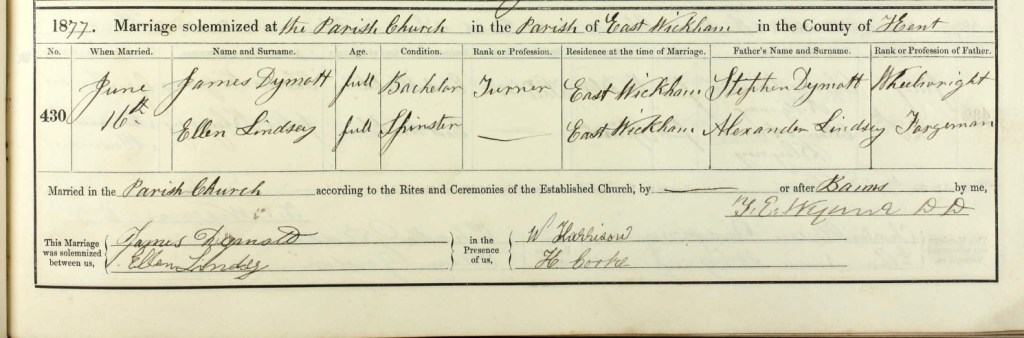 1877. Marriage solemnized at the Parish Church in the Parish of East Wickham in the County of Kent
No. When Married. Name and Surname. Age. Condition. Rank or Profession. Residence at the time of Marriage. Father's Name and Surname. Rank or Profession of Father.
June James Dymott full Bachelor Turner East Wickham Stephen Dymott Wheelwright
430 16th Ellen Lindsey full Spinster East Wickham Alexander Lindsey Forgeman
Married in the Parish Church according to the Rites and Ceremonies of the Established Church, by or after Banns by me,
D D
This Marriage was solemnized between us, James in the Presence of us, W Harrison
Ellen Lindsey H Cooke